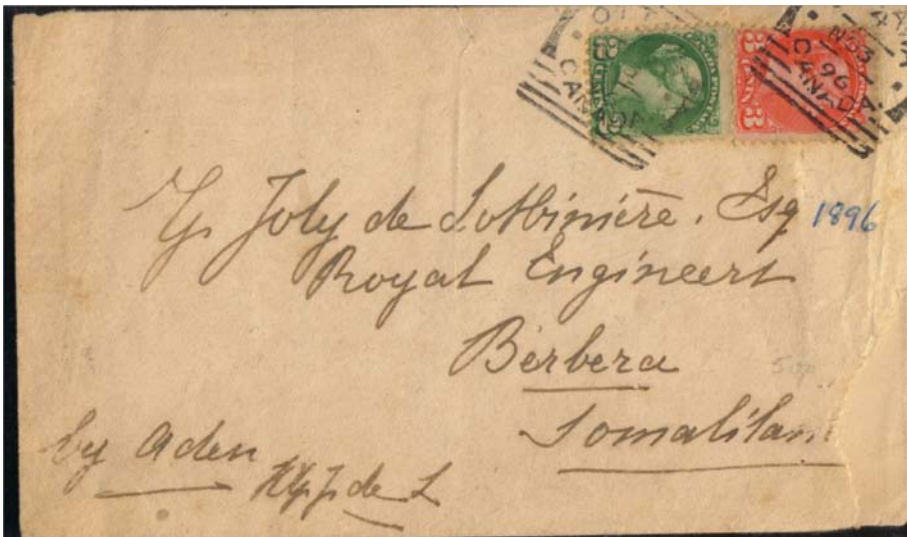 OTT
CANADA
4
NO 3
96
CANADA.
Joly de Lotbinière. Esq
1896
Royal Engineers
Berbera
Somalilan
by Aden
de L